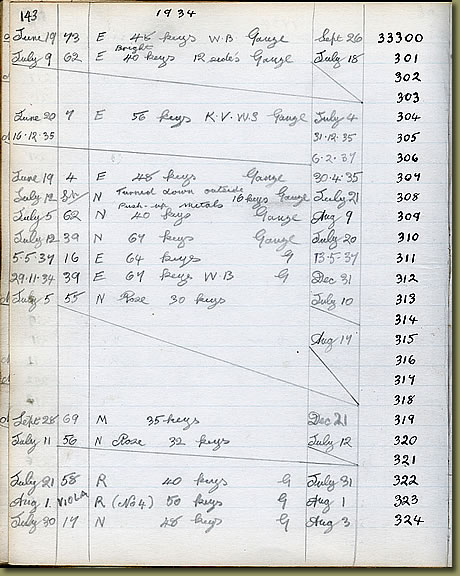 143 1934
June 19 73 E 48 keys W.B Gauge Sept 26 33300
July 9 62 E Bright 40 keys 12 side's Gauge July 18 301
302
303
June 20 7 E 56 keys K.V.WS Gauge July 4 304
16.12.35 31.12.35 305
6.2.37 306
June 19 4 E 48 keys Gauge 30.4.35 307
July 12 N Turned down outside push-up metals 16 keys Gauge July 21 308
July 5 62 N 40 keys Gauge Aug 9 309
July 12 39 N 67 keys Gauge July 20 310
5-5-37 16 E 64 keys G 13.5.37 311
29.11.34 39 E 67 keys W.B G Dec 31 312
July 5 55 N Rose 30 keys July 10 313
314
Aug 17 315
316
317
318
Sept 28 69 M 35 keys Dec 21 319
July 11 56 N Rose 32 keys July 12 320
321
July 21 58 R 40 keys G July 31 322
Aug 1 VIOLA R (No 4) 50 keys G Aug 1 323
July 30 17 N 48 keys G Aug 3 324